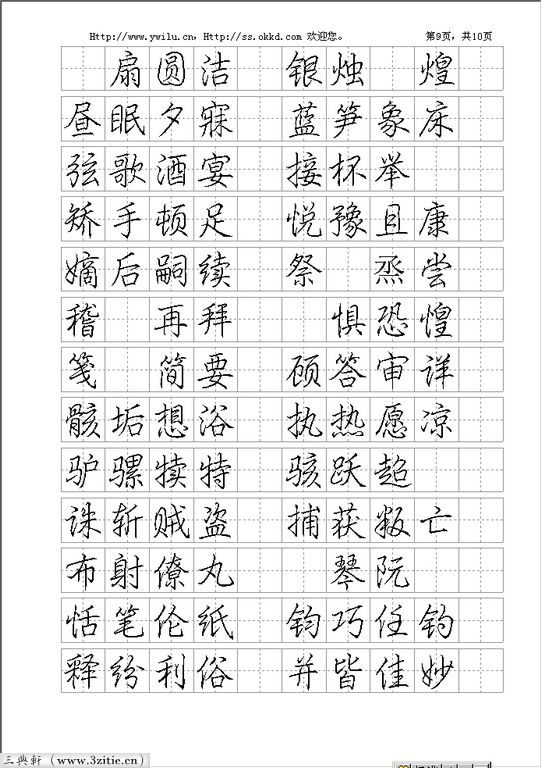 Http://www.ywilu.cn, Http://ss.okkd.com 欢迎您。 第9页，共10页
扇圆洁 银烛 煌
昼眠夕寐 蓝笋象床
弦歌酒宴 接杯举
矫手顿足 悦豫且康
嫡后嗣续 祭 烝尝
稽 再拜 惧恐惶
笺 简要 顾答审详
骸垢想浴 执热愿凉
驴骡犊特 骇跃超
诛斩贼盗 捕获叛亡
布射僚丸 琴阮
恬笔伦纸 钧巧任钓
释纷利俗 并皆佳妙
三典軒（www.3zitie.cn）